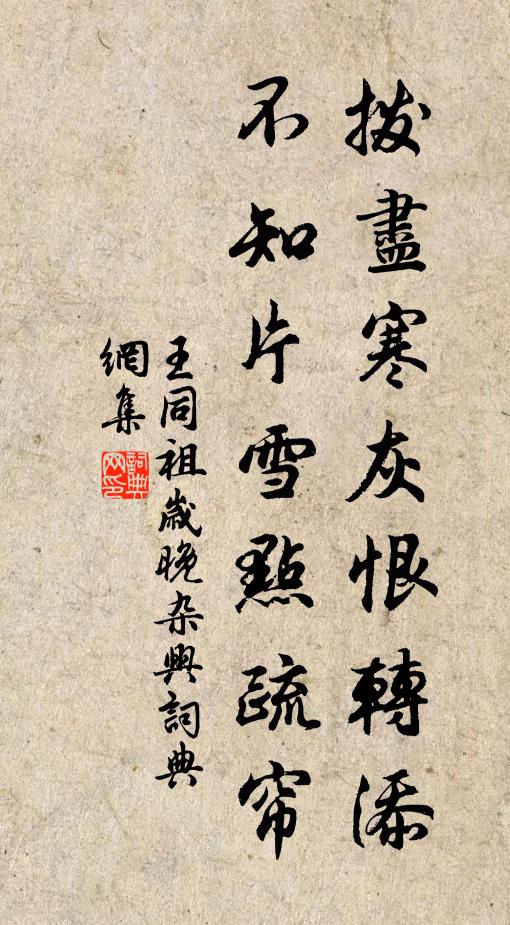 拨盡寒灰恨轉添
不知片雪點疏帘
王同祖歲晚杂興詞典
網集
詞典
网印